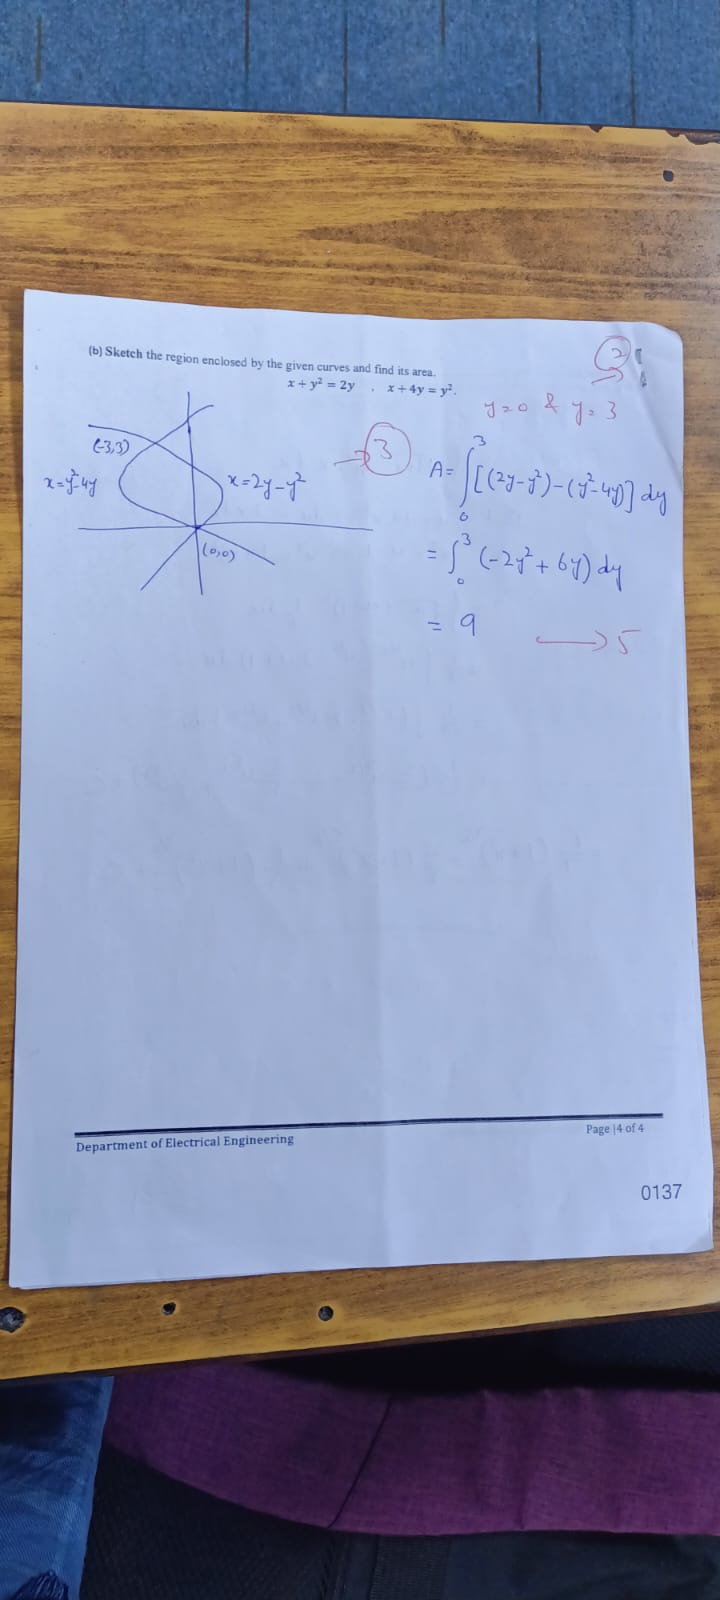 (b) Sketch the region enclosed by the given curves and find its area.
x + y² = 2y , x + 4y = y².
2
y=0 & y=3
(-3,3)
x=y²-4y
x=2y-y²
(0,0)
3
A= ∫₀³ [(2y-y²)-(y²-4y)] dy
= ∫₀³ (-2y²+6y) dy
= 9
→ 5
Department of Electrical Engineering
Page |4 of 4
0137